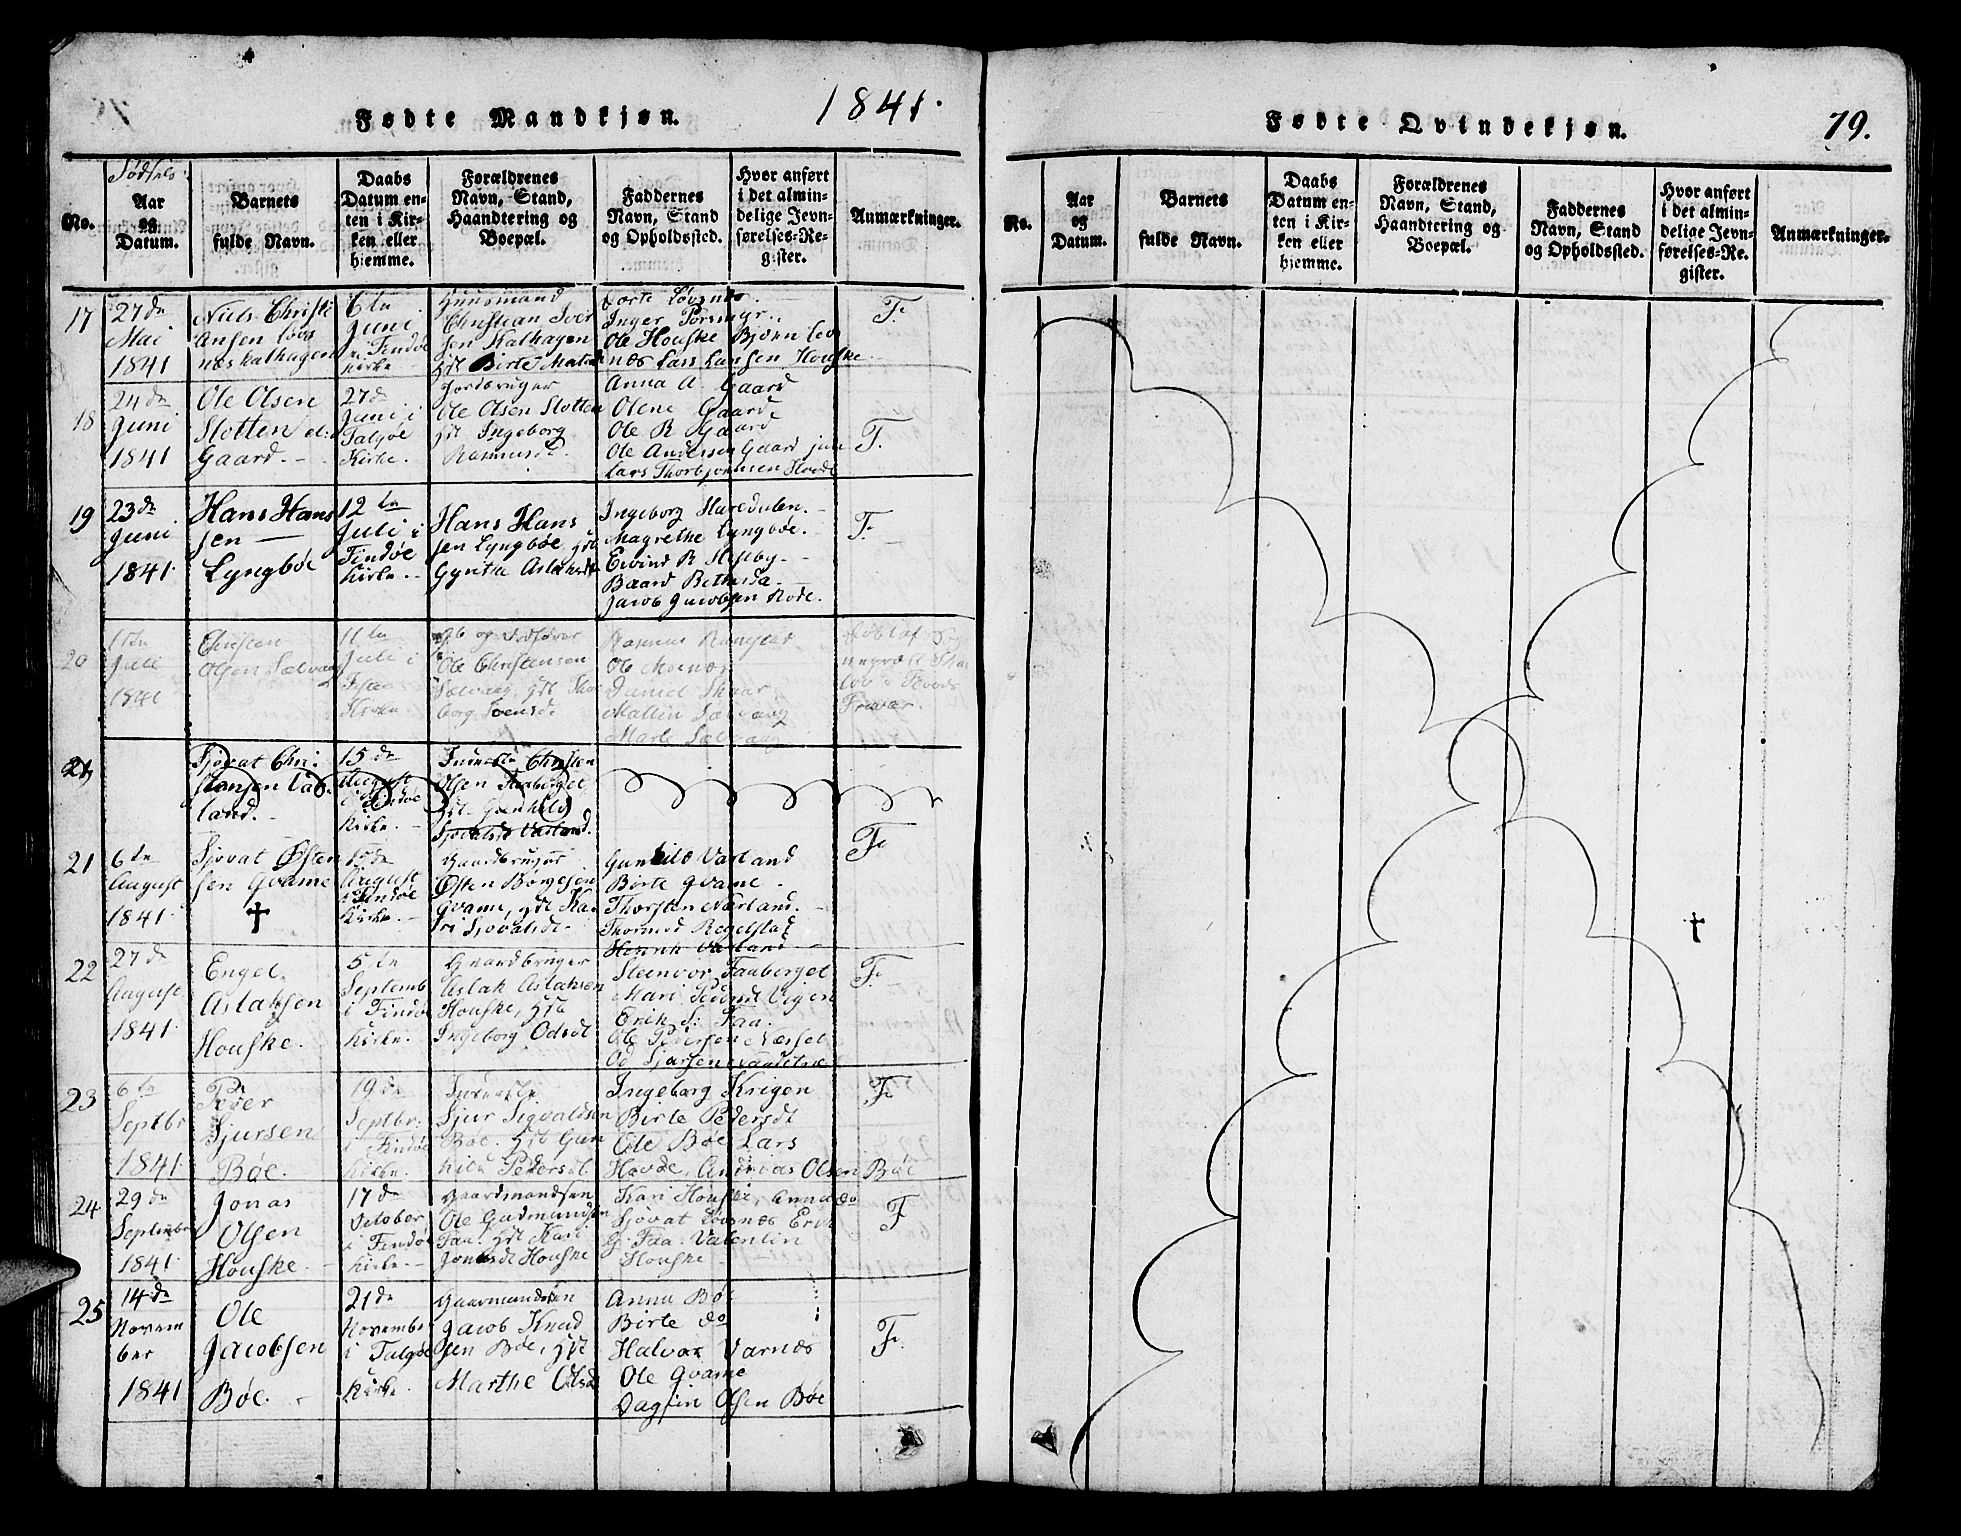 Fødte Mandkjøn.
1841.
No.
Fødsels
Aar
og
Datum.
Barnets
fulde Navn.
Daabs
Datum en-
ten i Kir-
ken eller
hjemme.
Forældrenes
Navn, Stand,
Haandtering og
Boepæl.
Faddernes
Navn, Stand
og Opholdssted.
Hvor anført
i det almin-
delige Jevn-
førelses-Re-
gister.
Anmærkninger.
17
27de
Mai
1841
Niels Christi
ansen Løvs
næskalhagen
6te
Juni
i Findøe
Kirke
Huusmand
Christian Iver
sen Kalhagen
hst Birte
Dorte Løvsnæs.
Inger
Ole Houske Bjørn Løvs
næs Lars Larsen Houske
F.
18
24de
Juni
1841
Ole Olsen
Slotten
Gaard.
27de
Juni i
Talgøe
Kirke.
Jordbruger
Ole Olsen Slotten
hst Ingeborg
Rasmusd.
Anna A. Gaard
Olene Gaard
Ole R Gaard
Ole Andersen Gaard jun
Lars Thorbjørnsen
F.
19
23de
Juni
1841.
Hans Hans
sen
Lyngbøe
12te
Juli i
Findøe
Kirke.
Hans Hans
sen Lyngbøe hst
Gyritha
Ingeborg
Magrethe Lyngbøe.
Eivind R Hesby.
Baard Bethsda.
Jacob Jacobsen Rode.
F.
20
11te
Juli
1841
Christen
Olsen Sælvaag
11te
Juli i
Kirke.
Ole Christensen
Sælvaag, hst Thor
borg Svensd.
Rasmus
Ole
Daniel Skaar
Mallin Sælvaag
Marte Sælvaag
21
Sjovat Chri
stensen Var
land.
15de
August
i Findøe
Kirke.
Inderste Christen
Olsen Faaberget
hst. Gunhild
Sjovatsd Varland.
21
6te
August
1841.
Sjovat Østen
sen Qvame
15de
August
i Findøe
Kirke.
Gaardbruger
Østen Børgesen
Qvame, hst Ka
ri Sjovatsd.
Gunhild Varland
Birte Qvame.
Thorsten Nærland.
Thormod Regelstad
Henrik Varland
F.
22
27de
August
1841.
Engel
Aslaksen
Houske.
5te
Septemb
i Findøe
Kirke.
Gaardbruger
Aslak Aslaksen
Houske, hst
Ingeborg Odsdt.
Steinvor Faaberget
Mari Pedersdt Vigen
Erik S. Faa.
Ole Pedersen Næsset
F.
23
6te
Septbr
1841.
Peder
Sjursen
Bøe.
19de
Septbr.
i Findøe
Kirke.
Inderste
Sjur Sigvaldsen
Bøe. hst Gun
hild Pedersdt
Ingeborg Krigen
Birte Pedersdt
Ole Bøe Lars
Hovde, Andreas Olsen Bøe
F.
24
29de
September
1841.
Jonas
Olsen
Houske.
17de
October
i Findøe
Kirke.
Gaardmandsøn
Ole Gudmundsen
Faa hst Kari
Jonasdt Houske
Kari Houske, Anna do
Sjovat Løvsnæs Erik
G. Faa. Valentin
Houske
F
25
14de
Novem
ber
1841
Ole
Jacobsen
Bøe.
21de
November
i Talgøe
Kirke.
Gaardmandsøn
Jacob Knud
sen Bøe, hst
Marthe Olsd
Anna Bøe
Birte do
Halvor Varnæs
Ole Qvame
Dagfin Olsen Bøe
F.
Fødte Qvindekjøn.
79.
No.
Aar
og
Datum.
Barnets
fulde Navn.
Daabs
Datum en-
ten i Kir-
ken eller
hjemme.
Forældrenes
Navn, Stand,
Haandtering og
Boepæl.
Faddernes
Navn, Stand
og Opholdssted.
Hvor anført
i det almin-
delige Jevn-
førelses-Re-
gister.
Anmærkninger.